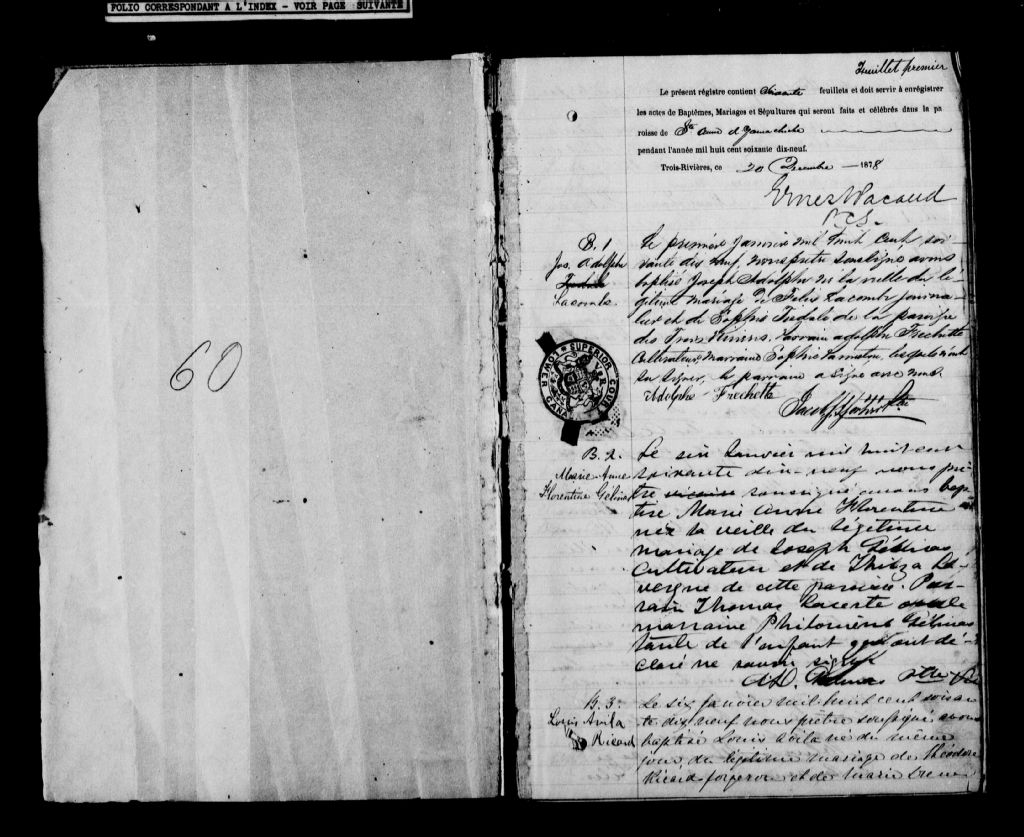 FOLIO CORRESPONDANT A L'INDEX - VOIR PAGE SUIVANTE
60
Feuillet premier
Le présent régistre contient soixante feuillets et doit servir à enrégistrer
les actes de Baptêmes, Mariages et Sépultures qui seront faits et célébrés dans la pa
roisse de Ste Anne d'Yamachiche
pendant l'année mil huit cent soixante dix-neuf.
Trois-Rivières, ce 30 Décembre 1878
B. 1
Jos. Adolphe
Lacombe
Le premier Janvier mil huit cent, soi-
xante dix neuf, nous prêtre soussigné avons
baptisé Joseph Adolphe né la veille du lé-
gitime mariage de Félix Lacombe journa-
lier et de Sophie de la paroisse
des Trois Rivières. Parrain Adolphe Frechette
Cultivateur, marraine Sophie
signer, le parrain a signé avec nous
Adolphe Frechette
SUPERIOR COURT
LOWER CANADA
V R
B. 2.
Marie-Anne
Florentine Gélinas
Le six Janvier mil huit cent
soixante dix-neuf nous prê-
tre vicaire soussigné avons bap-
tisé Marie Anne Florentine
née la veille du légitime
mariage de Joseph Gélinas
Cultivateur et de Thirza La-
vergne de cette paroisse. Par-
rain Thomas Lacerte
marraine Philomène Gélinas
tante de l'enfant qui ont dé-
claré ne savoir signer
Ptre
B. 3.
Louis Avila
Ricard
Le six janvier mil huit cent soixan
te dix neuf nous prêtre soussigné avons
baptisé Louis Avila né du même
jour, du légitime mariage de Théodore
Ricard forgeron et de Marie